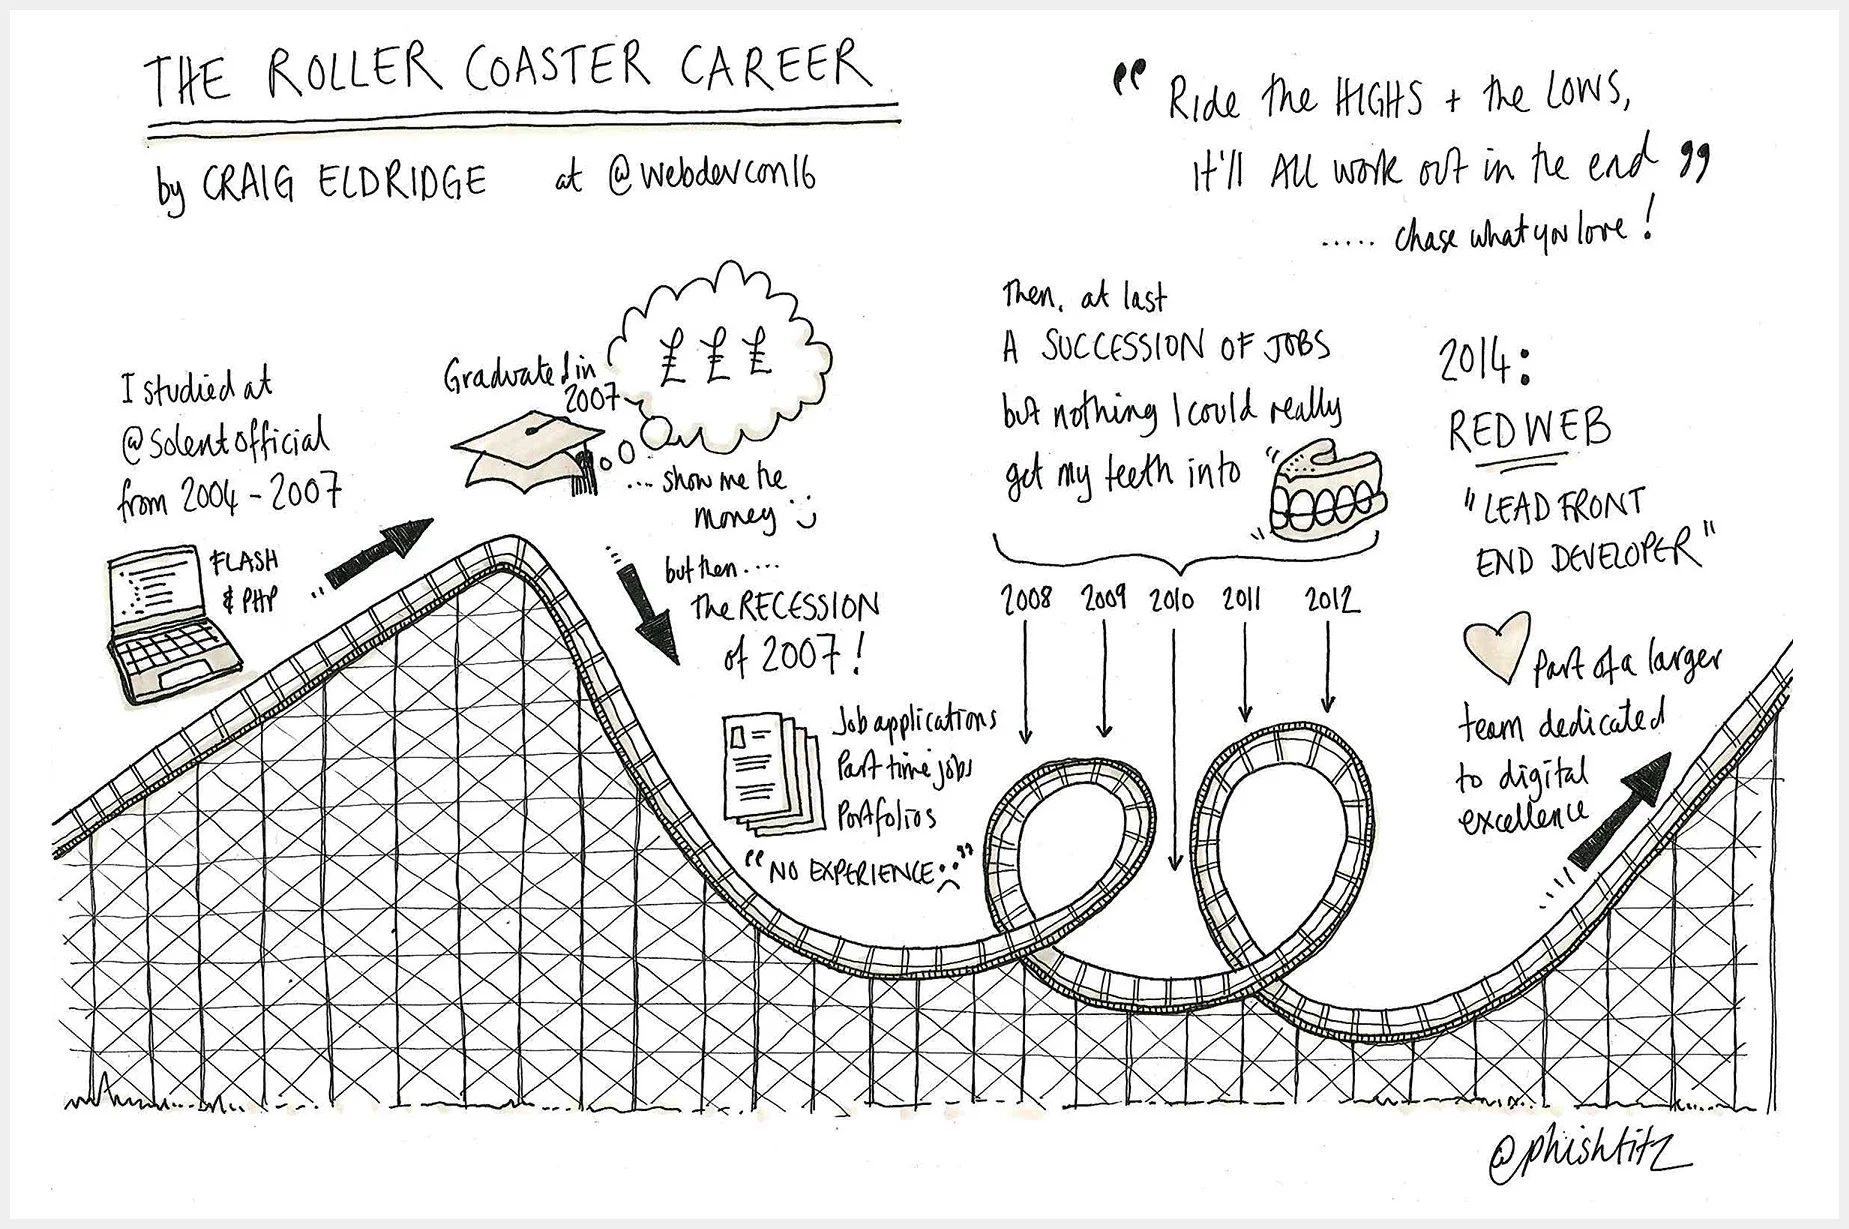 THE ROLLER COASTER CAREER
by CRAIG ELDRIDGE at @webdevcon16
"Ride the HIGHS + the LOWS,
It'll ALL work out in the end"
..... chase what you love!
I studied at
@Solentofficial
from 2004 - 2007
FLASH
& PHP
Graduated in
2007
£ £ £
... show me the
money :)
but then....
The RECESSION
of 2007!
Job applications
Part time jobs
Portfolios
"NO EXPERIENCE :("
Then, at last
A SUCCESSION OF JOBS
but nothing I could really
get my teeth into
2008 2009 2010 2011 2012
2014:
REDWEB
"LEAD FRONT
END DEVELOPER"
part of a larger
team dedicated
to digital
excellence
@phishtitz